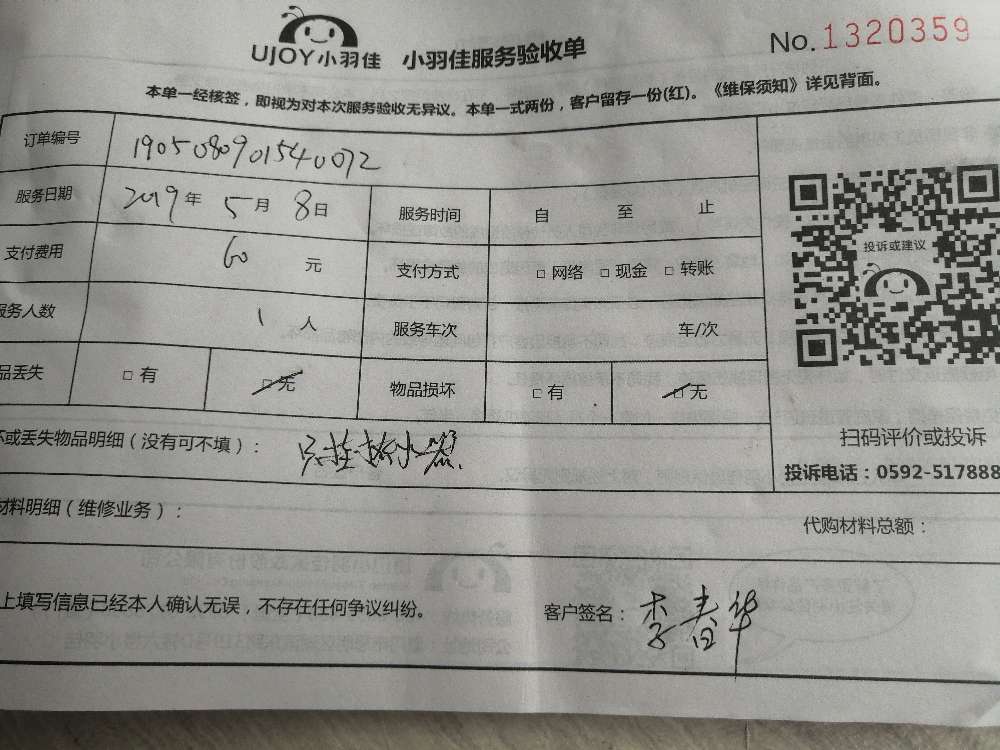 UJOY小羽佳 小羽佳服务验收单 No.1320359
本单一经核签，即视为对本次服务验收无异议。本单一式两份，客户留存一份(红)。《维保须知》详见背面。
订单编号 1905080901540072
服务日期 2019年 5月 8日 服务时间 自 至 止
支付费用 60 元 支付方式 □网络 □现金 □转账
服务人数 1 人 服务车次 车/次
品丢失 □有 □无 物品损坏 □有 □无
投诉或建议
坏或丢失物品明细（没有可不填）：
扫码评价或投诉
投诉电话：0592-517888
材料明细（维修业务）： 代购材料总额：
上填写信息已经本人确认无误，不存在任何争议纠纷。 客户签名：李春华